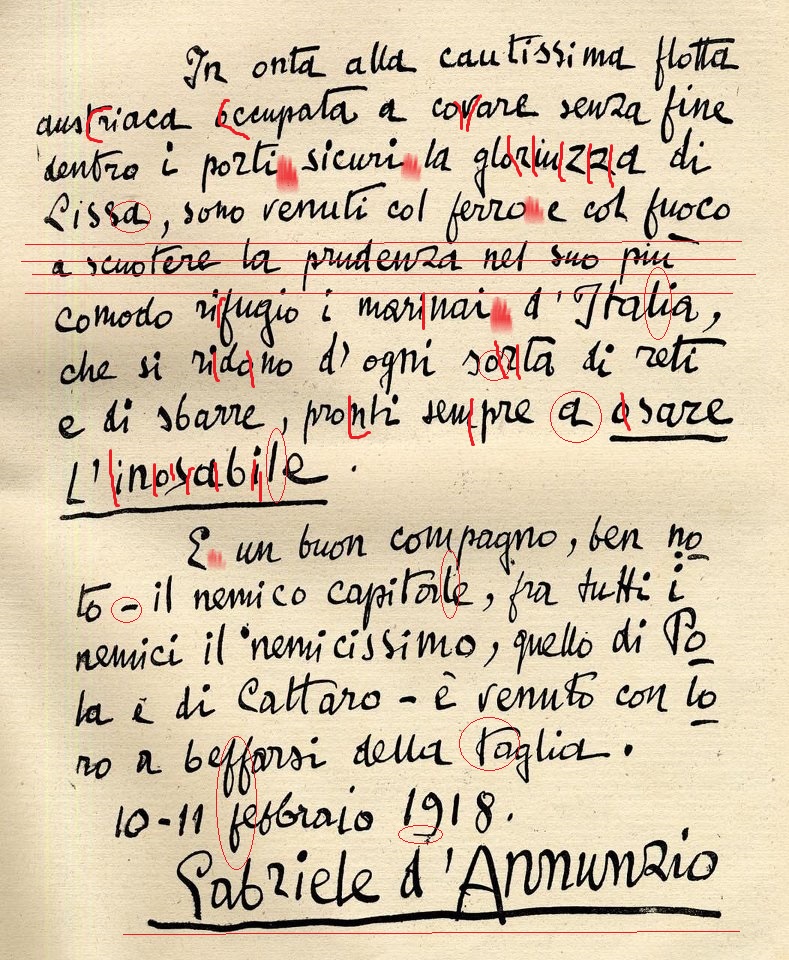 In onta alla cautissima flotta
austriaca occupata a covare senza fine
dentro i porti sicuri la gloriuzza di
Lissa, sono venuti col ferro e col fuoco
a scuotere la prudenza nel suo più
comodo rifugio i marinai d'Italia,
che si ridono d'ogni sorta di reti
e di sbarre, pronti sempre a osare
L'inosabile.
E un buon compagno, ben no
to - il nemico capitale, fra tutti i
nemici il nemicissimo, quello di Po
la e di Cattaro - è venuto con lo
ro a beffarsi della taglia.
10-11 febbraio 1918.
Gabriele d'Annunzio